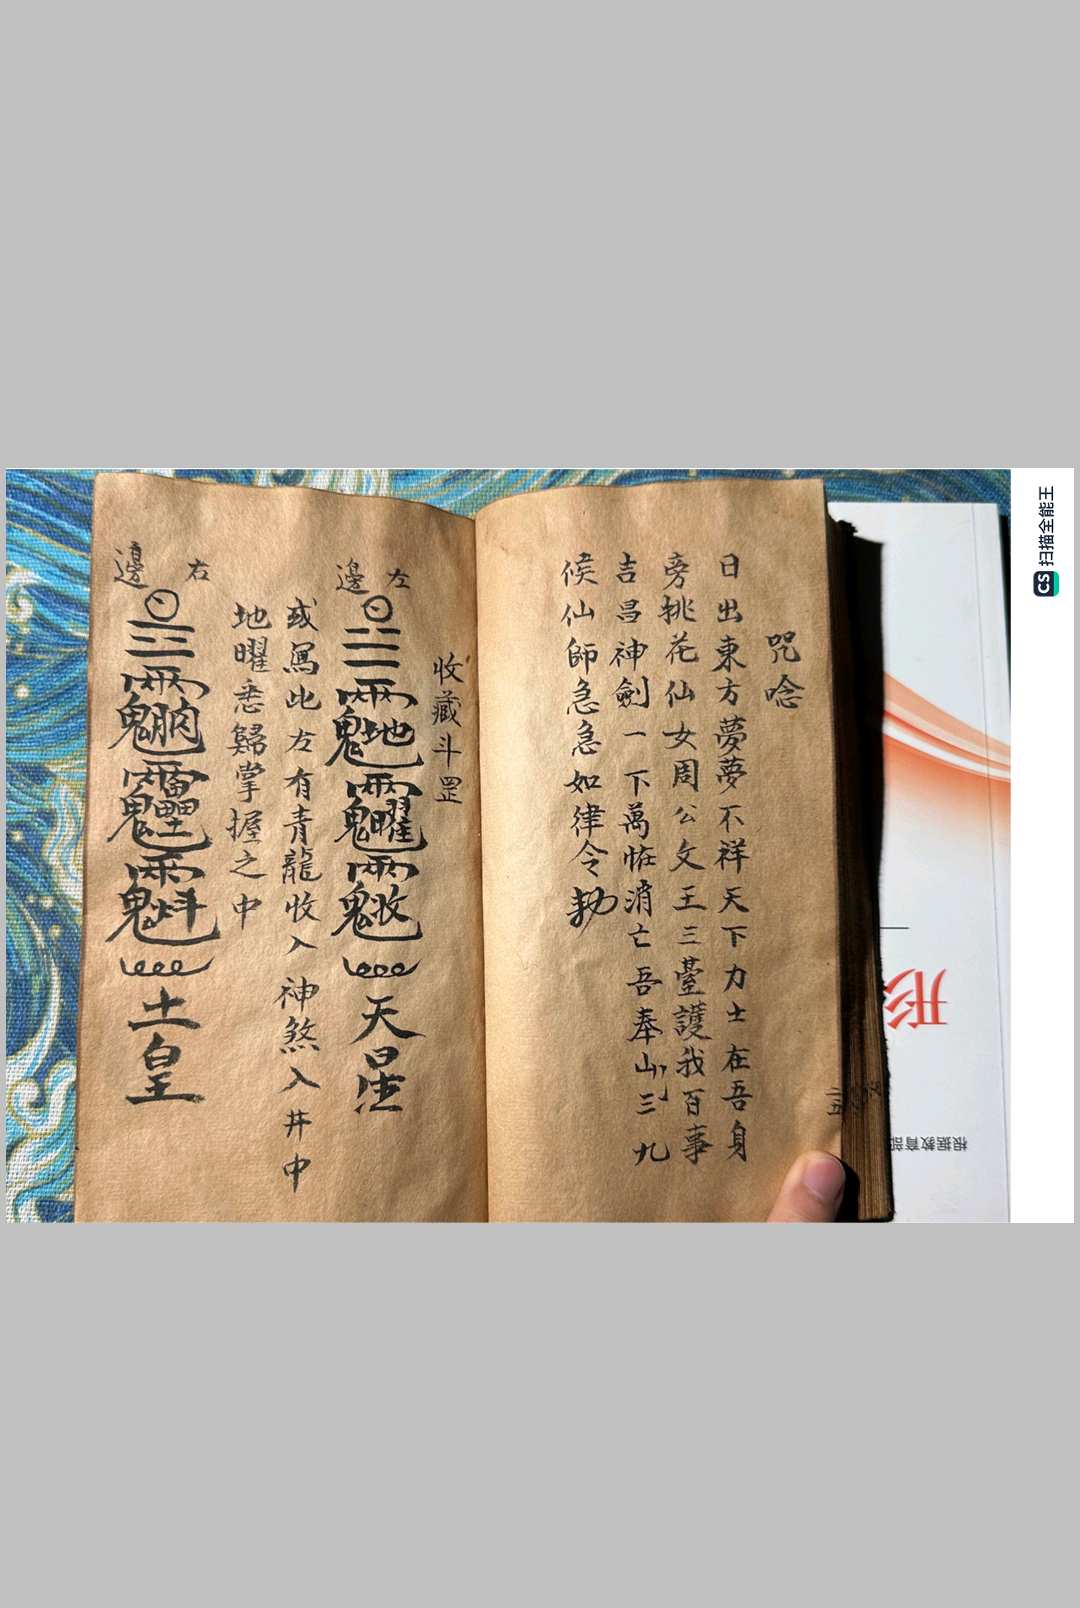 咒唸
日出東方夢夢不祥天下力士在吾身
旁挑花仙女周公文王三臺護我百事
吉昌神劍一下萬恠消亡吾奉山三九
候仙師急急如律令勅
收藏斗罡
左邊
天星
或寫此左有青龍收入神煞入井中
地曜悉歸掌握之中
右邊
土皇
形
根据教育部
CS 扫描全能王